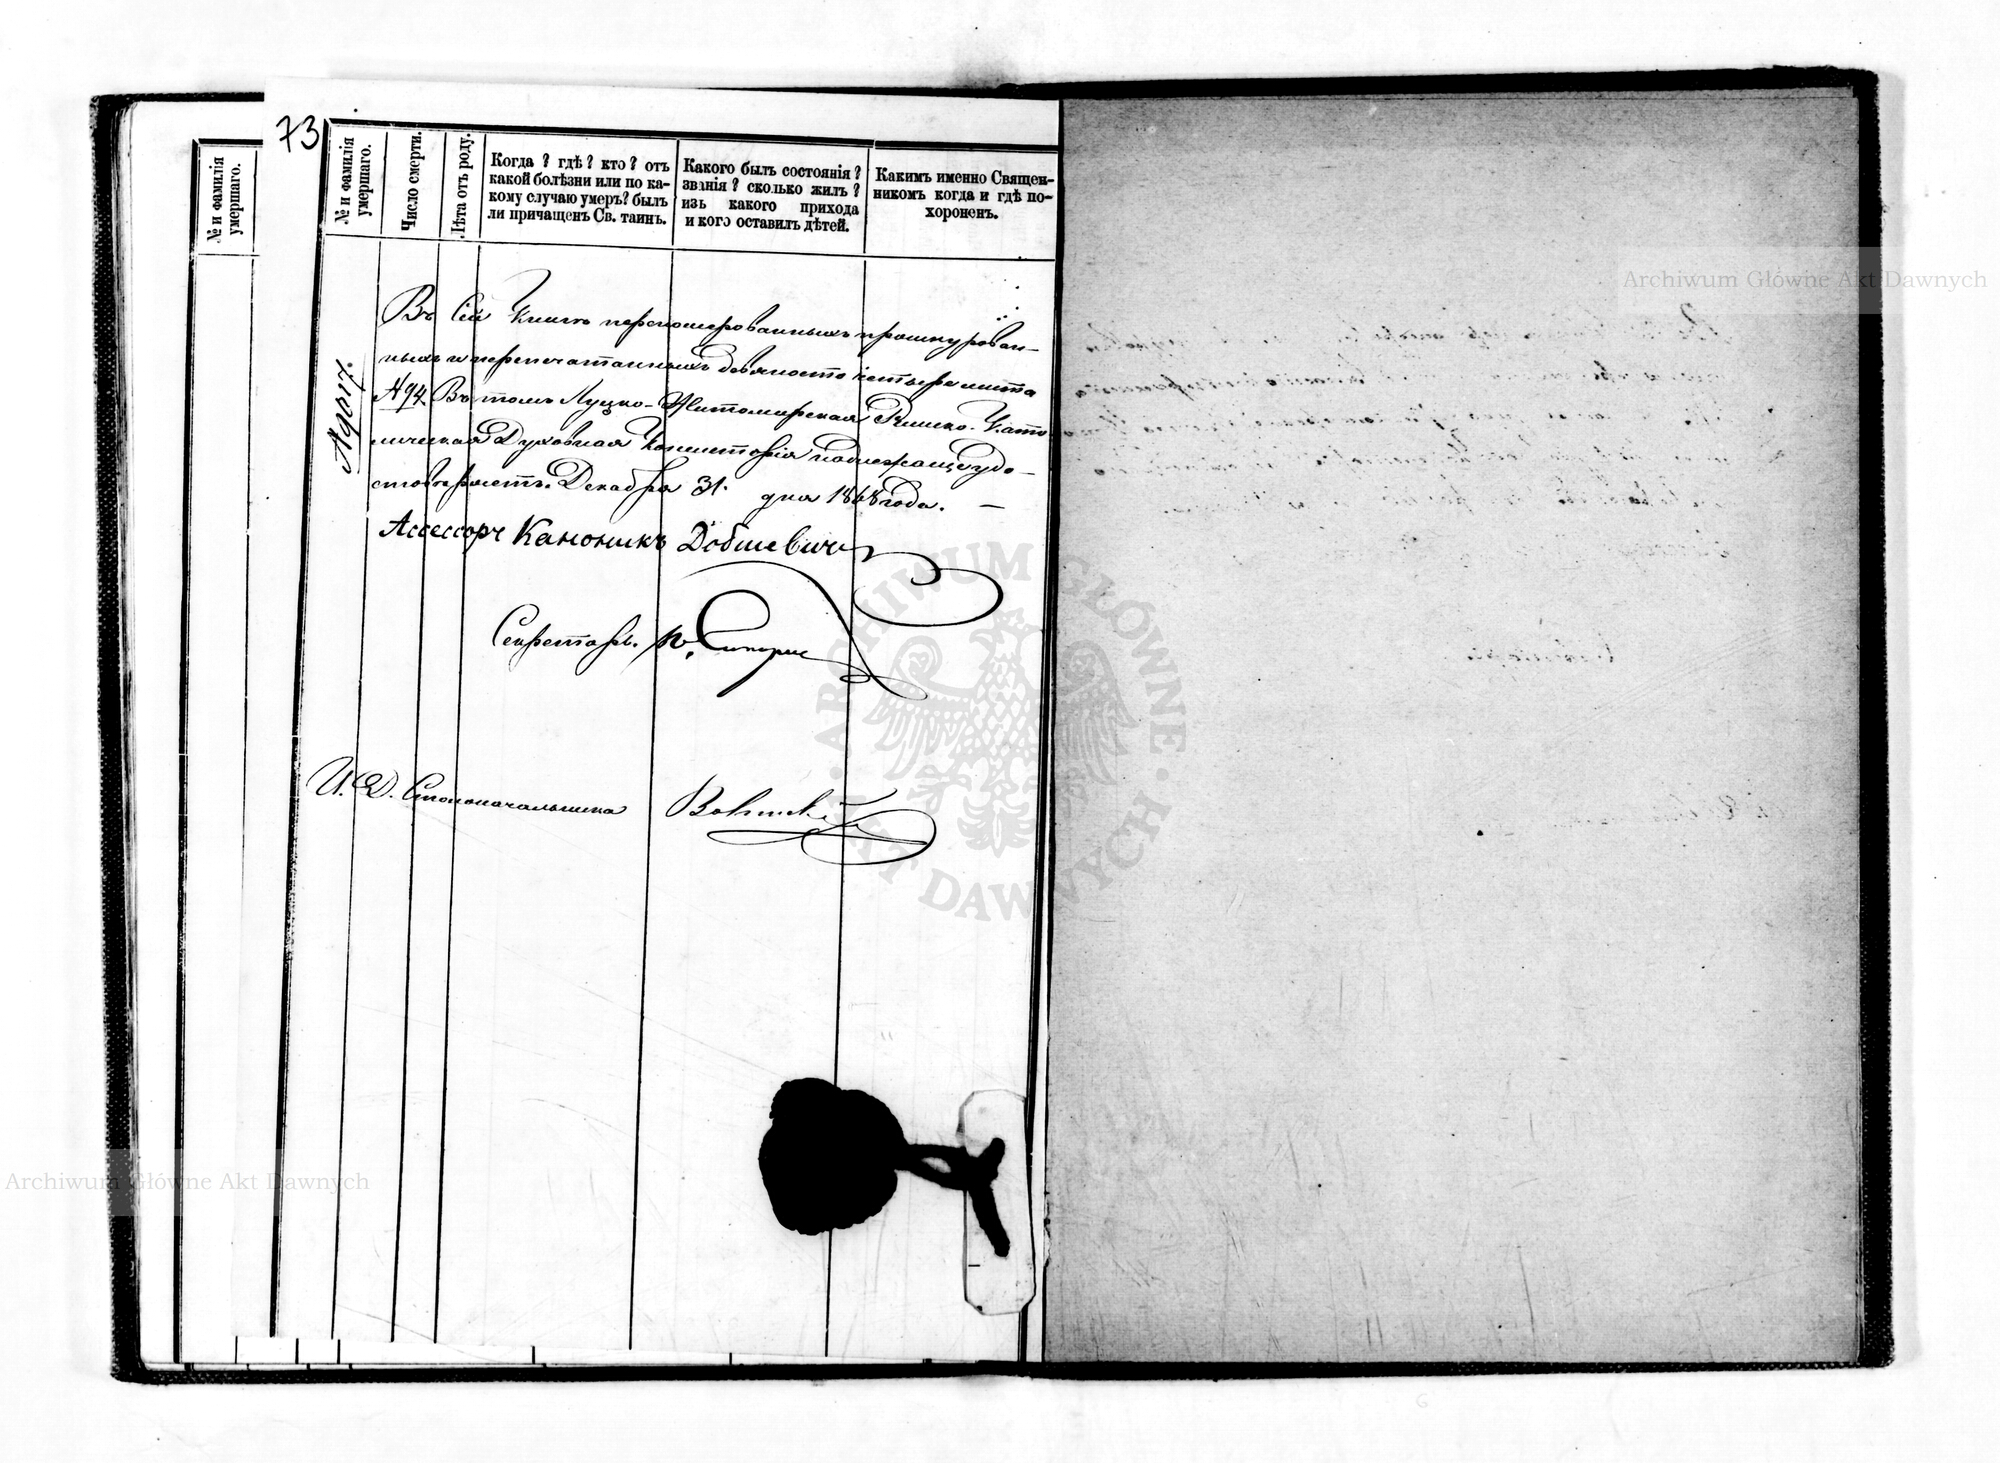 73
№ и фамилія
умершаго.
№ и фамилія
умершаго.
Число смерти.
Лѣта отъ роду.
Когда ? гдѣ ? кто ? отъ
какой болѣзни или по ка-
кому случаю умеръ? былъ
ли причащенъ Св. таинъ.
Какого былъ состоянія ?
званія ? сколько жилъ ?
изъ какого прихода
и кого оставилъ дѣтей.
Какимъ именно Священ-
никомъ когда и гдѣ по-
хороненъ.
Въ сей книгѣ перенумерованныхъ прошнурован-
ныхъ и перепечатанныхъ девяносто четыре листа
N 94. Въ томъ Луцко-Житомирская Римско-Като
лическая Духовная Консисторія надлежаще удо-
стовѣряетъ. Декабря 31. дня 1868 года. —
Ассессоръ Каноникъ
Секретарь
И. Д. Столоначальника
Archiwum Główne Akt Dawnych
Archiwum Główne Akt Dawnych
ARCHIWUM GŁÓWNE AKT DAWNYCH